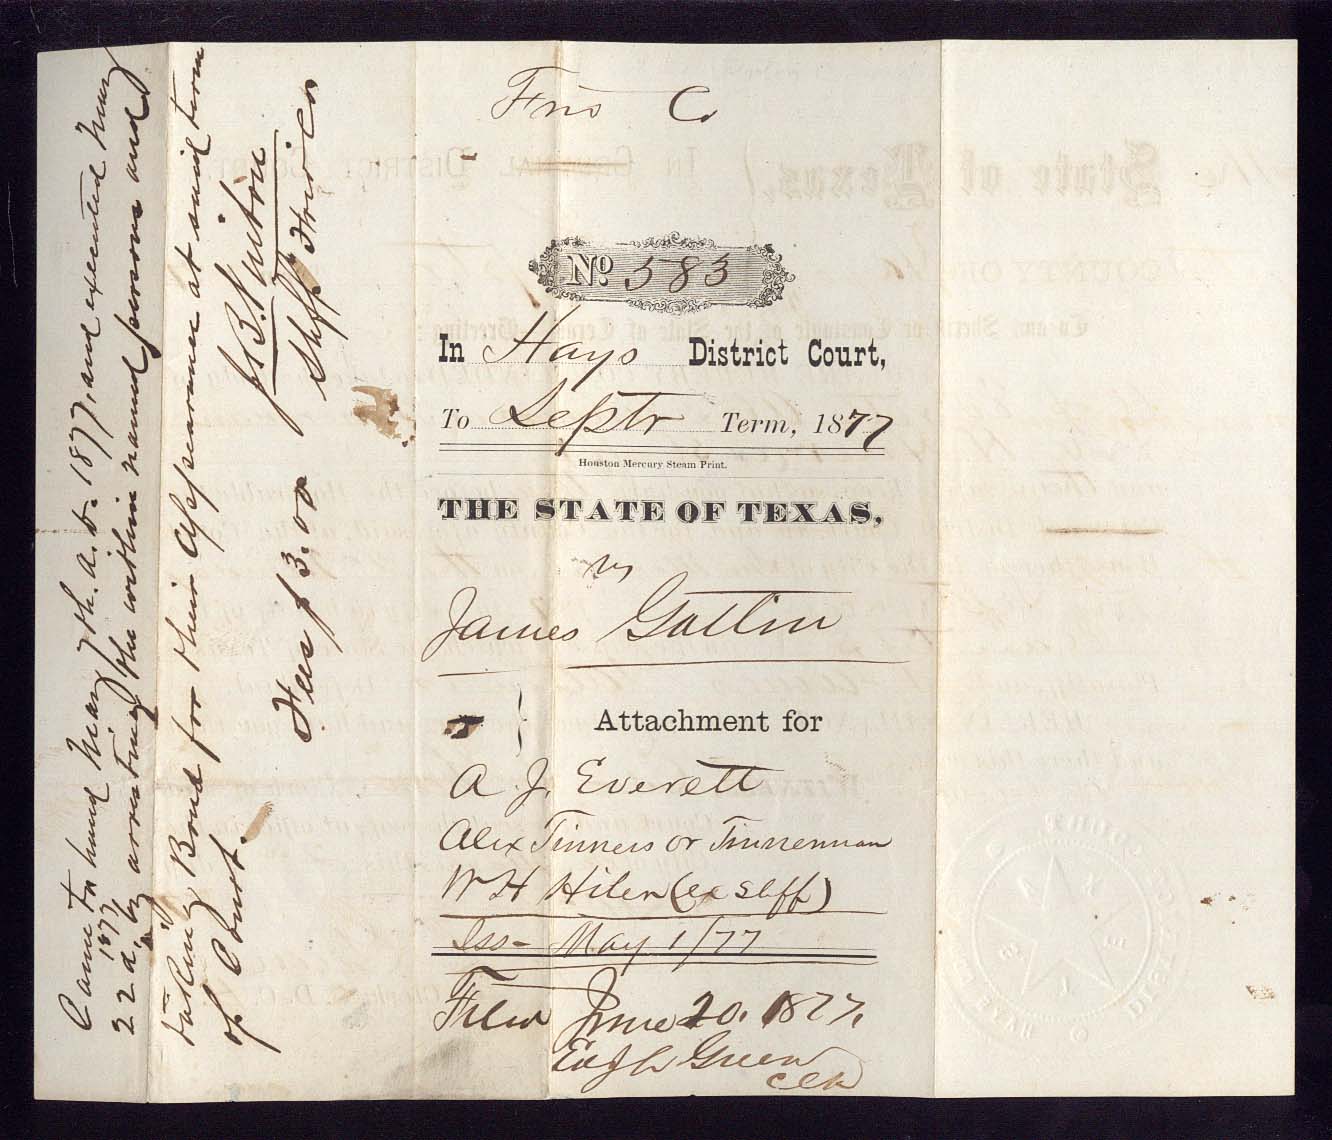 Frio C.
No. 583
In Hays District Court,
To Septr Term, 1877
Houston Mercury Steam Print.
THE STATE OF TEXAS,
vs
James Gatlin
Attachment for
A J. Everett
Alex Tinners or Tinnerman
W H Hiler (ex shff)
Iss- May 1/77
Filed June 20. 1877.
Ed J L Green
Clk
Came to hand May 7th. A. D. 1877, and executed May
22d, 1877 by arresting the within named persons and
taking Bond for their appearance at said term
of Court.
Shff Frio Co
Fees $3.00